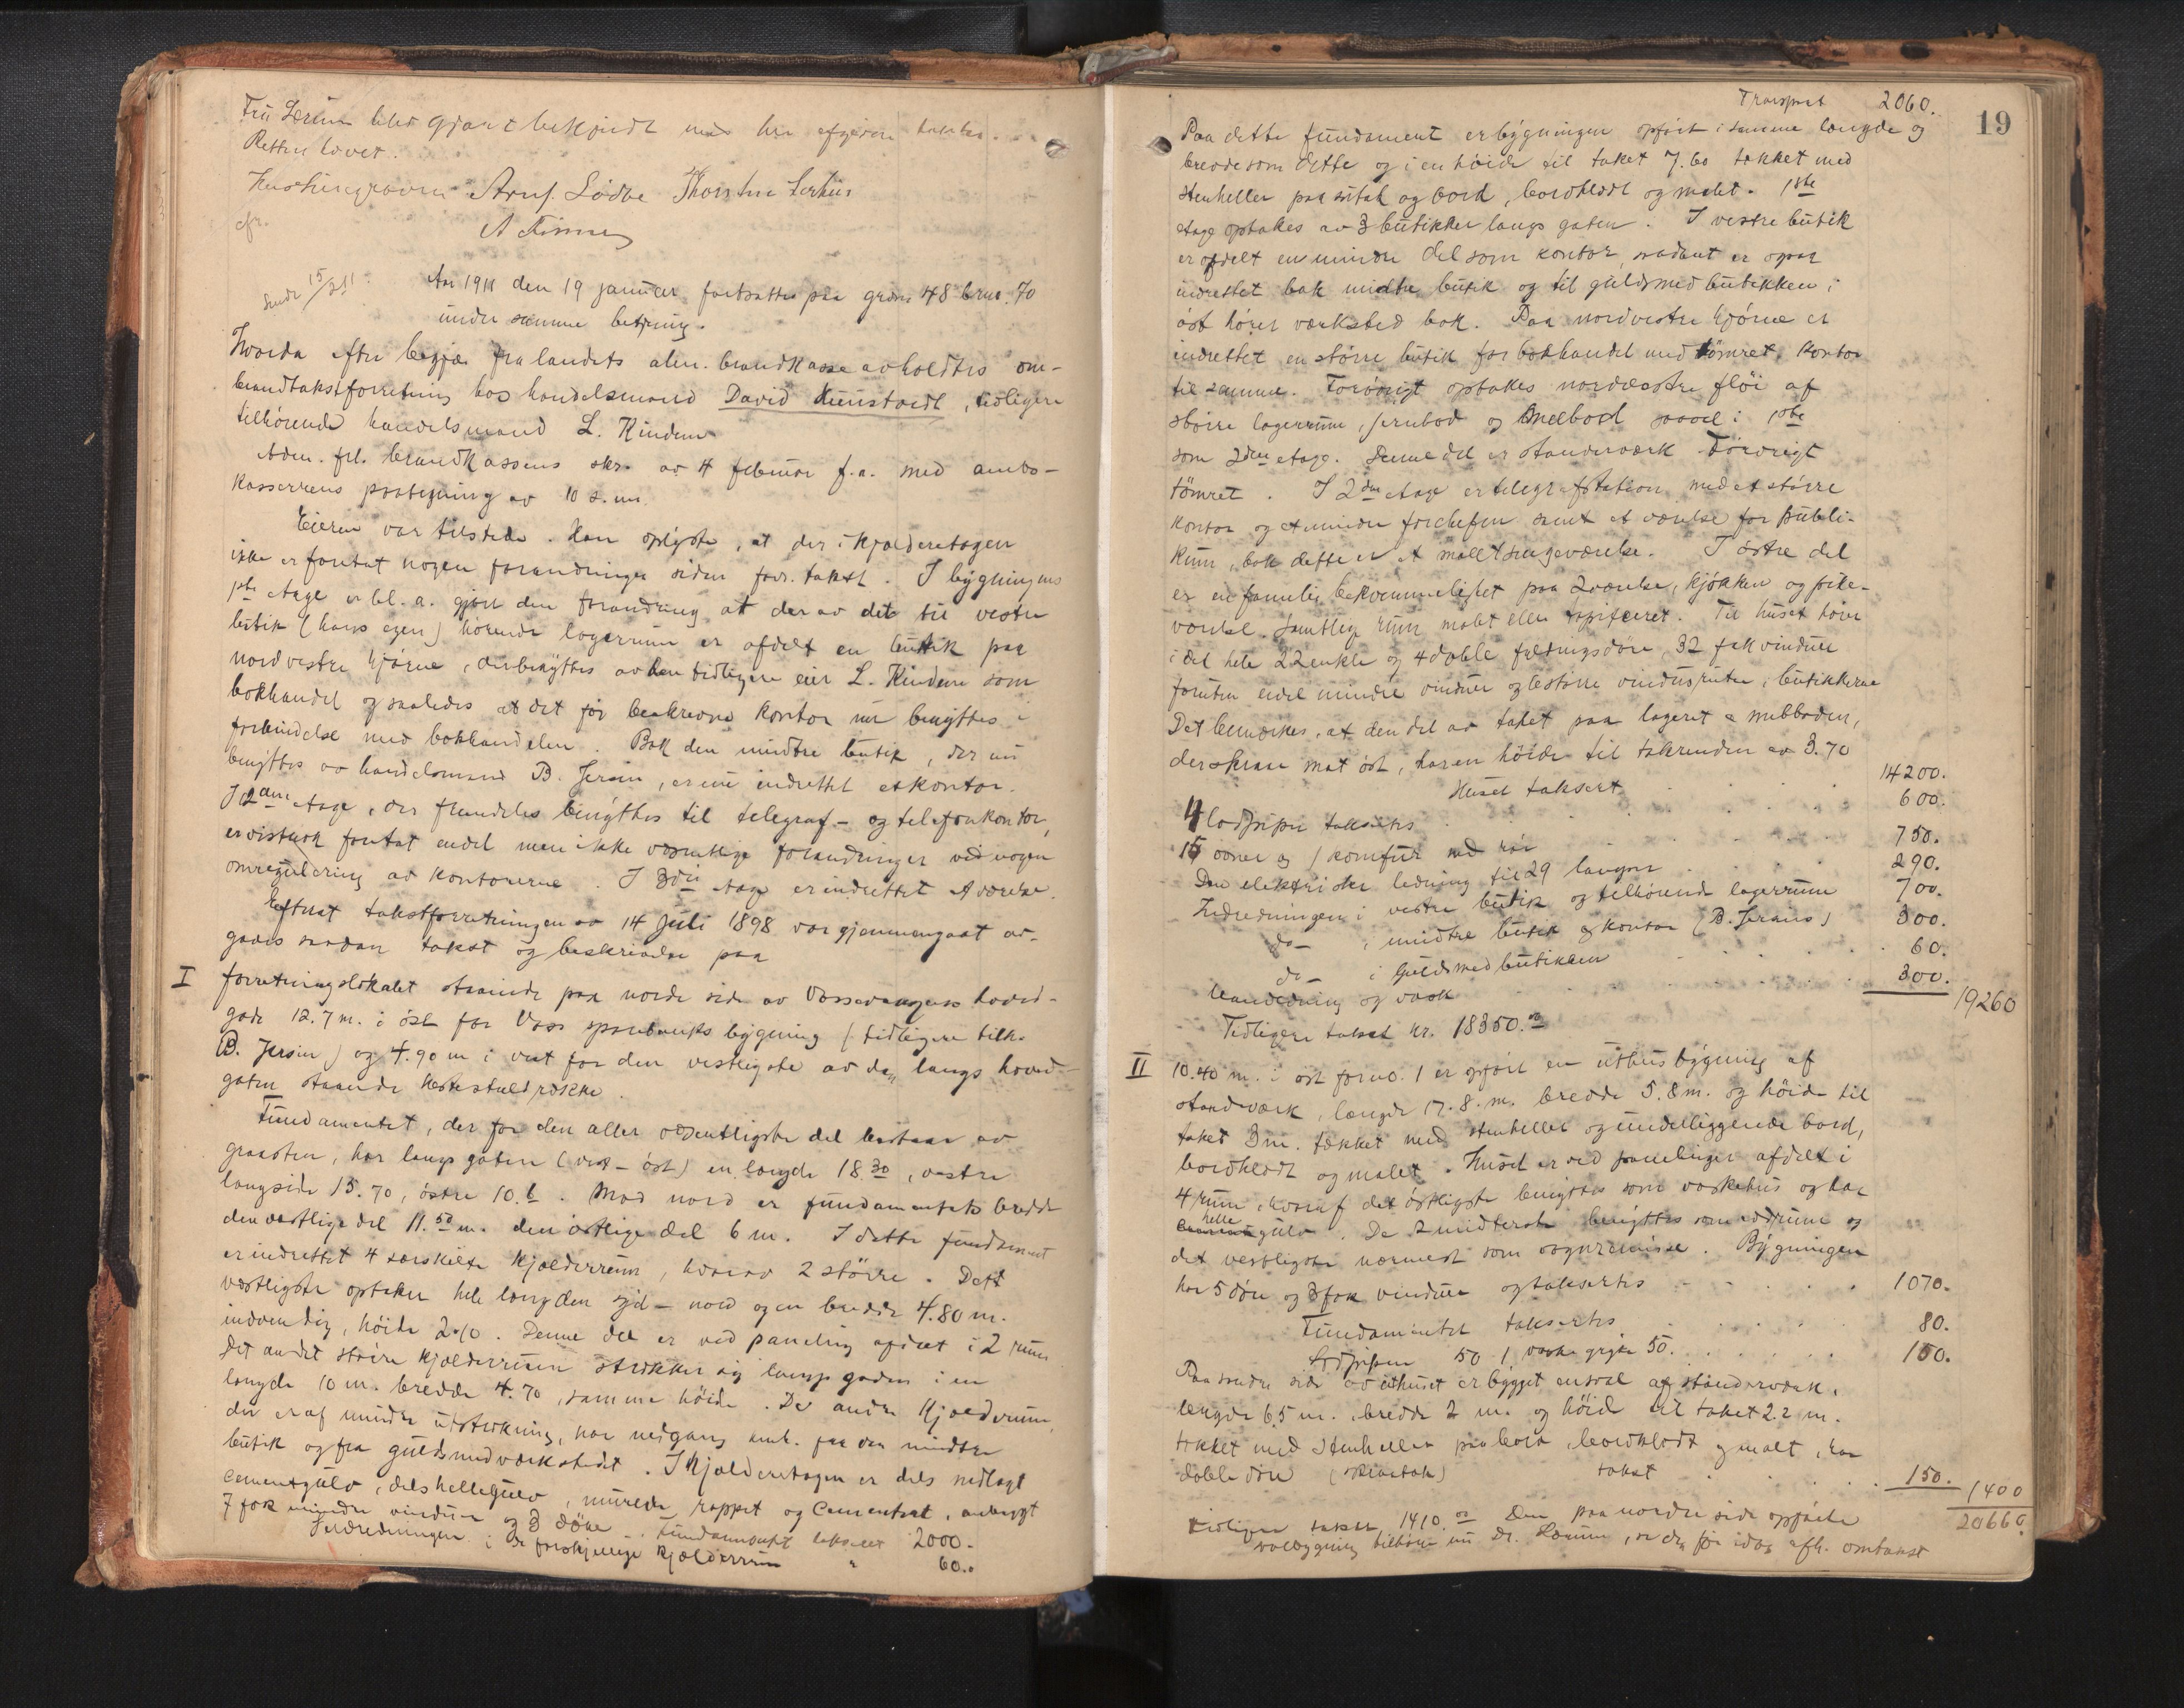 Fru Lærum blev gjort bekjendt med her afgivne takster.
Retten hævet.
Arnf. Lødve Thorstein Lerhus
A Finne
Sendt 15/2 11.
Aar 1911 den 19 januar fortsattes paa grdno 48 brno. 70
under samme betjening.
Hvorda efter begjær fra landets alm. brandkasse avholdtes om-
brandtakstforretning hos handelsmand David Kunstadt, tidligere
tilhørende handelsmand L. Kindem
Adm. frl. brandkassens skr. av 4 februar f.a. med ambs-
kasserens paategning av 10 s.m.
Eieren var tilstede. Han oplyste, at der i kjælderetagen
ikke er foretat nogen forandringer siden forr. takst. I bygningens
1ste etage er bl.a. gjort den forandring at der av det til vestre
butik (hans egen) hørende lagerrum er afdelt en butik paa
nordvestre hjørne, der benyttes av den tidligere eier L. Kindem som
bokhandel og saaledes at det før beskrevne kontor nu benyttes i
forbindelse med bokhandelen. Bak den midtre butik, der nu
benyttes av handelsmand B. Jersin, er nu indrettet et kontor.
I 2den etage, der fremdeles benyttes til telegraf- og telefonkontor,
er vistnok foretat endel men ikke væsentlige forandringer ved nogen
omregulering av kontorerne. I 3die etage er indrettet et værelse.
Efterat takstforretningen av 14 juli 1898 var gjennemgaat av-
gaves saadan takst og beskrivelse paa
I forretningslokalet staaende paa nordre side av Vossevangens hoved-
gade 12.7 m. i øst for Voss sparebanks bygning (tidligere tilh.
B. Jersin) og 4.90 m i vest for den vestligste av de langs hoved-
gaten staaende hestestaldrække.
Fundamentet, der for den aller væsentligste del bestaar av
graasten, har langs gaten (vest - øst) en længde 18.30, vestre
langside 15.70, østre 10.6. Mod nord er fundamentets bredde
den vestlige del 11.50 m. den østlige del 6 m. I dette fundament
er indrettet 4 særskilte kjælderrum, hvorav 2 større. Det
vestligste optaker hele længden syd - nord og en bredde 4.80 m.
indvendig, høide 2.10. Denne del er ved paneling afdelt i 2 rum
Det andet større kjælderrum strækker sig langs gaden i en
længde 10 m. bredde 4.70, samme høide. De andre kjælderrum,
der er af mindre utstrækning, har nedgang fra den midtre
butik og fra guldsmedværkstedet. I kjælderetagen er dels nedlagt
cementgulv, dels hellegulv, murede rappet og cementeret, anbragt
7 fak mindre vinduer og 3 døre. Fundamentet takseret 2000.
Indredningen i de forskjellige kjælderrum " 60..
19
Transport 2060.
Paa dette fundament er bygningen opført i samme længde og
bredde som dette og i en høide til taket 7.60 tækket med
stenheller paa sutak og bord, bordklædt og malet. 1ste
etage optakes av 3 butikker langs gaten. I vestre butik
er afdelt en mindre del som kontor, saadant er ogsaa
indrettet bak midtre butik og til guldsmedbutikken i
øst hører værksted bak. Paa nordvestre hjørne er
indrettet en større butik for bokhandel med tømret kontor
til samme. Forøvrigt optakes nordøstre fløi af
større lagerrum, jernbod og melbod saavel i 1ste
som 2den etage. Denne del er standerværk forøvrigt
tømret. I 2den etage er telegrafstation med et større
kontor og et mindre for chefen samt et værelse for publi-
kum, bak dette er et malet sengeværelse. I østre del
er en familiebekvemmelighet paa 2 værelse, kjøkken og pike-
værelse. Samtlige rum malet eller tapiseret. Til huset hører
i det hele 22 enkle og 4 doble fyldningsdøre, 32 fak vinduer
foruten endel mindre vinduer og 6 større vindusruter i butikkerne
Det bemærkes, at den del av taket paa lageret & melboden,
der skraar mot øst, har en høide til takrenden av 3.70
Huset taksert 14200.
4 lodpiper takseres 600.
15 ovner og 1 komfur med rør 750.
Den elektriske ledning til 29 lamper 290.
Indredningen i vestre butik og tilhørende lagerrum 700.
do - i midtre butik & kontor (B. Jersins) 300.
do - i guldsmedbutikken 60.
Vandledning og vask 300.
19260
Tidligere takst kr. 18350.00
II 10.40 m. i øst for no. 1 er opført en uthusbygning af
standerværk, længde 17.8. m. bredde 5.8 m. og høide til
taket 3 m. tækket med stenheller og underliggende bord,
bordklædt og malet. Huset er ved panelinger afdelt i
4 rum, hvoraf det østligste benyttes som vaskehus og har
hellegulv. De 2 midterste benyttes som vedrum og
det vestligste nærmest som vognremisse. Bygningen
har 5 døre og 3 fak vinduer og takseres 1070.
Fundamentet takseres 80.
Lodpipen 50 1 vaskegryte 50. 100.
Paa søndre side av uthuset er bygget en sval af standerværk.
længde 6.5 m. bredde 2 m. og høide til taket 2.2 m.
tækket med stenheller paa bord, bordklædt og malt, har
doble døre (skraatak) takst 150.
1400
20660
Tidligere takst 1410.00 Den paa nordre side opførte
vedbygning tilhører nu dr. Lærum, se den for idag afh. omtakst